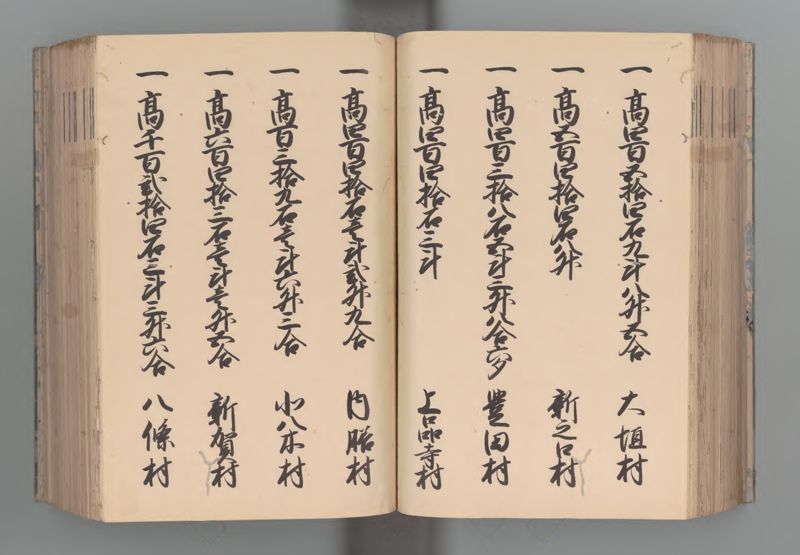 一 高四百五拾四石九斗八升五合 大垣村
一 高五百四拾四石八升 新之口村
一 高四百三拾八石五斗三升八合六夕 豊田村
一 高四百四拾石三斗 上品寺村
一 高四百四拾石壱斗弐升九合 内膳村
一 高百三拾九石壱斗六升三合 小八木村
一 高六百四拾三石壱斗壱升五合 新賀村
一 高千百弐拾四石三斗三升六合 八條村